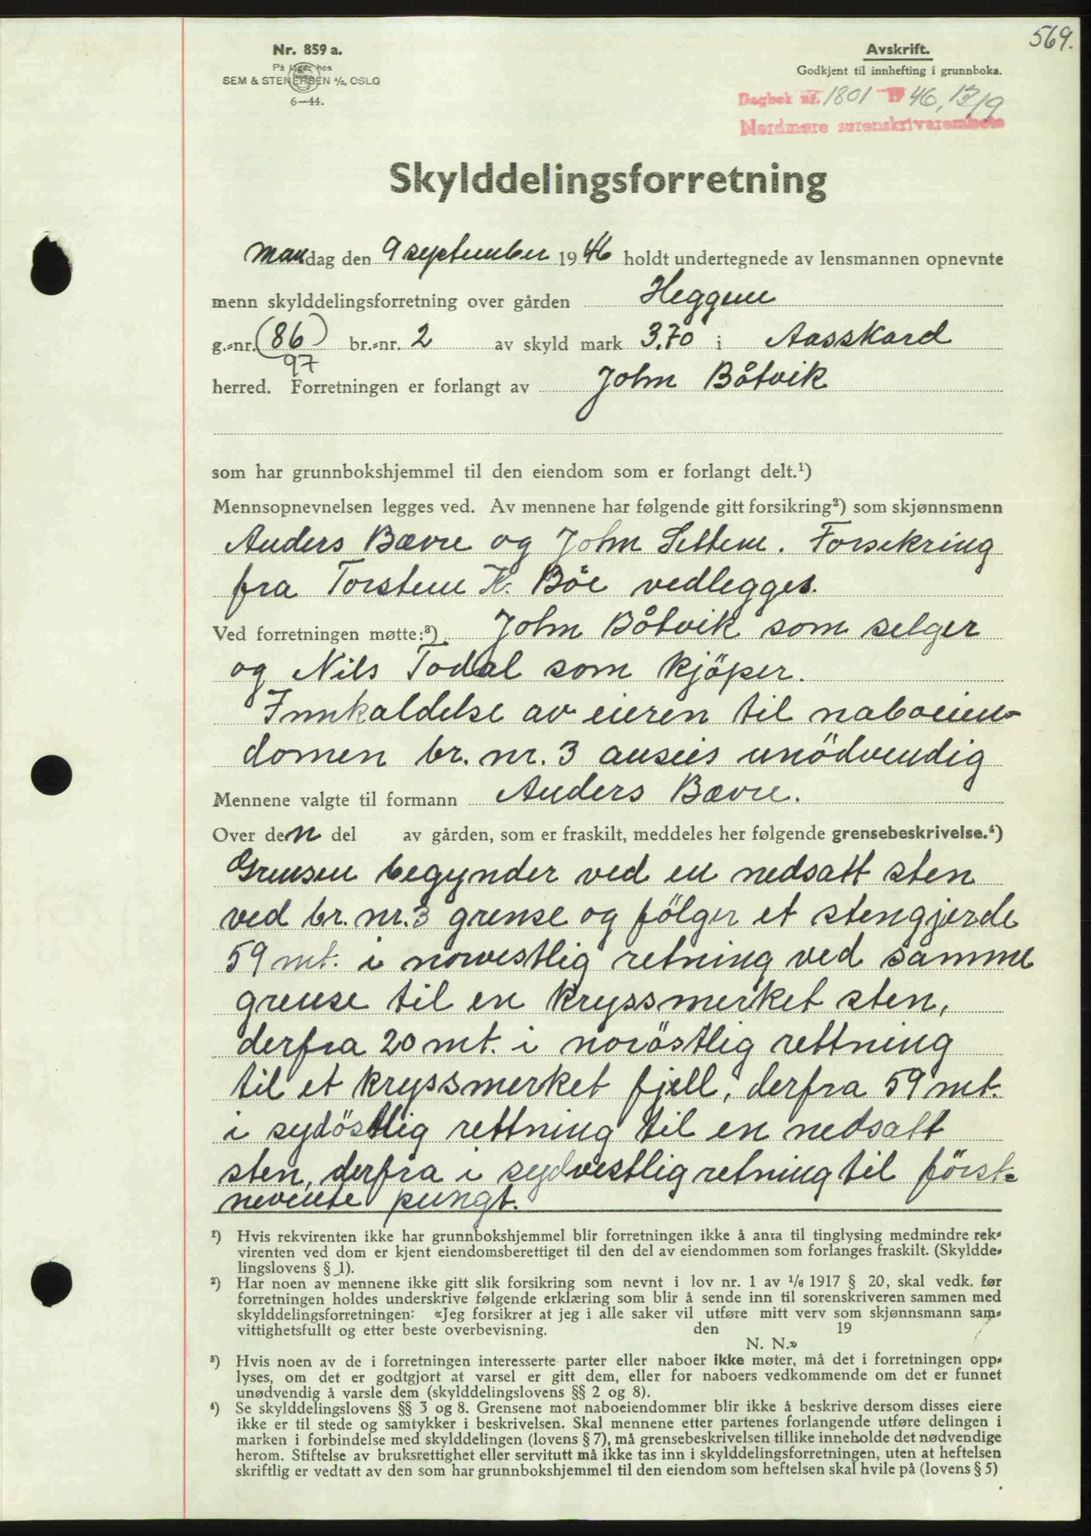 569.
Nr. 859 a.
På lager hos
SEM & STENERSEN A/S, OSLO
6—44.
Avskrift.
Godkjent til innhefting i grunnboka.
Dagbok nr. 1801 19 46, 13/9
Nordmøre sorenskriverembete
Skylddelingsforretning
Mandag den 9 september 1946 holdt undertegnede av lensmannen opnevnte
menn skylddelingsforretning over gården Heggem
g.-nr. (86) br.-nr. 2 av skyld mark 3,70 i Aasskard
97
herred. Forretningen er forlangt av John Båtvik
som har grunnbokshjemmel til den eiendom som er forlangt delt.¹)
Mennsopnevnelsen legges ved. Av mennene har følgende gitt forsikring²) som skjønnsmenn
Anders Bævre og John Settem. Forsikring
fra Torstein K. Böe vedlegges.
Ved forretningen møtte:³) John Båtvik som selger
og Nils Todal som kjöper.
Innkaldelse av eieren til naboeien-
domen br. nr. 3 ansees unödvendig
Mennene valgte til formann Anders Bævre.
Over den del av gården, som er fraskilt, meddeles her følgende grensebeskrivelse.⁴)
Grensen begynder ved en nedsatt sten
ved br. nr. 3 grense og fölger et stengjerde
59 mt. i norvestlig retning ved samme
grense til en kryssmerket sten,
derfra 20 mt. i noröstlig rettning
til et kryssmerket fjell, derfra 59 mt.
i sydöstlig rettning til en nedsatt
sten, derfra i sydvestlig retning til först-
nevnte pungt.
¹) Hvis rekvirenten ikke har grunnbokshjemmel blir forretningen ikke å anta til tinglysing medmindre rek-
virenten ved dom er kjent eiendomsberettiget til den del av eiendommen som forlanges fraskilt. (Skyldde-
lingslovens § 1).
²) Har noen av mennene ikke gitt slik forsikring som nevnt i lov nr. 1 av 1/6 1917 § 20, skal vedk. før
forretningen holdes underskrive følgende erklæring som blir å sende inn til sorenskriveren sammen med
skylddelingsforretningen: «Jeg forsikrer at jeg i alle saker vil utføre mitt verv som skjønnsmann sam-
vittighetsfullt og etter beste overbevisning. den 19
N. N.»
³) Hvis noen av de i forretningen interesserte parter eller naboer ikke møter, må det i forretningen opp-
lyses, om det er godtgjort at varsel er gitt dem, eller for naboers vedkommende om det er funnet
unødvendig å varsle dem (skylddelingslovens §§ 2 og 8).
⁴) Se skylddelingslovens §§ 3 og 8. Grensene mot naboeiendommer blir ikke å beskrive dersom disses eiere
ikke er til stede og samtykker i beskrivelsen. Skal mennene etter partenes forlangende utføre delingen i
marken i forbindelse med skylddelingen (lovens § 7), må grensebeskrivelsen tillike inneholde det nødvendige
herom. Stiftelse av bruksrettighet eller servitutt må ikke tas inn i skylddelingsforretningen, uten at heftelsen
skriftlig er vedtatt av den som har grunnbokshjemmel til den eiendom som heftelsen skal hvile på (lovens § 5)